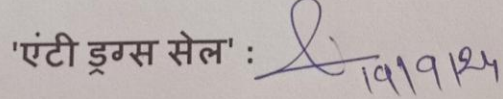 'एंटी ड्रग्स सेल' : 19/9/24